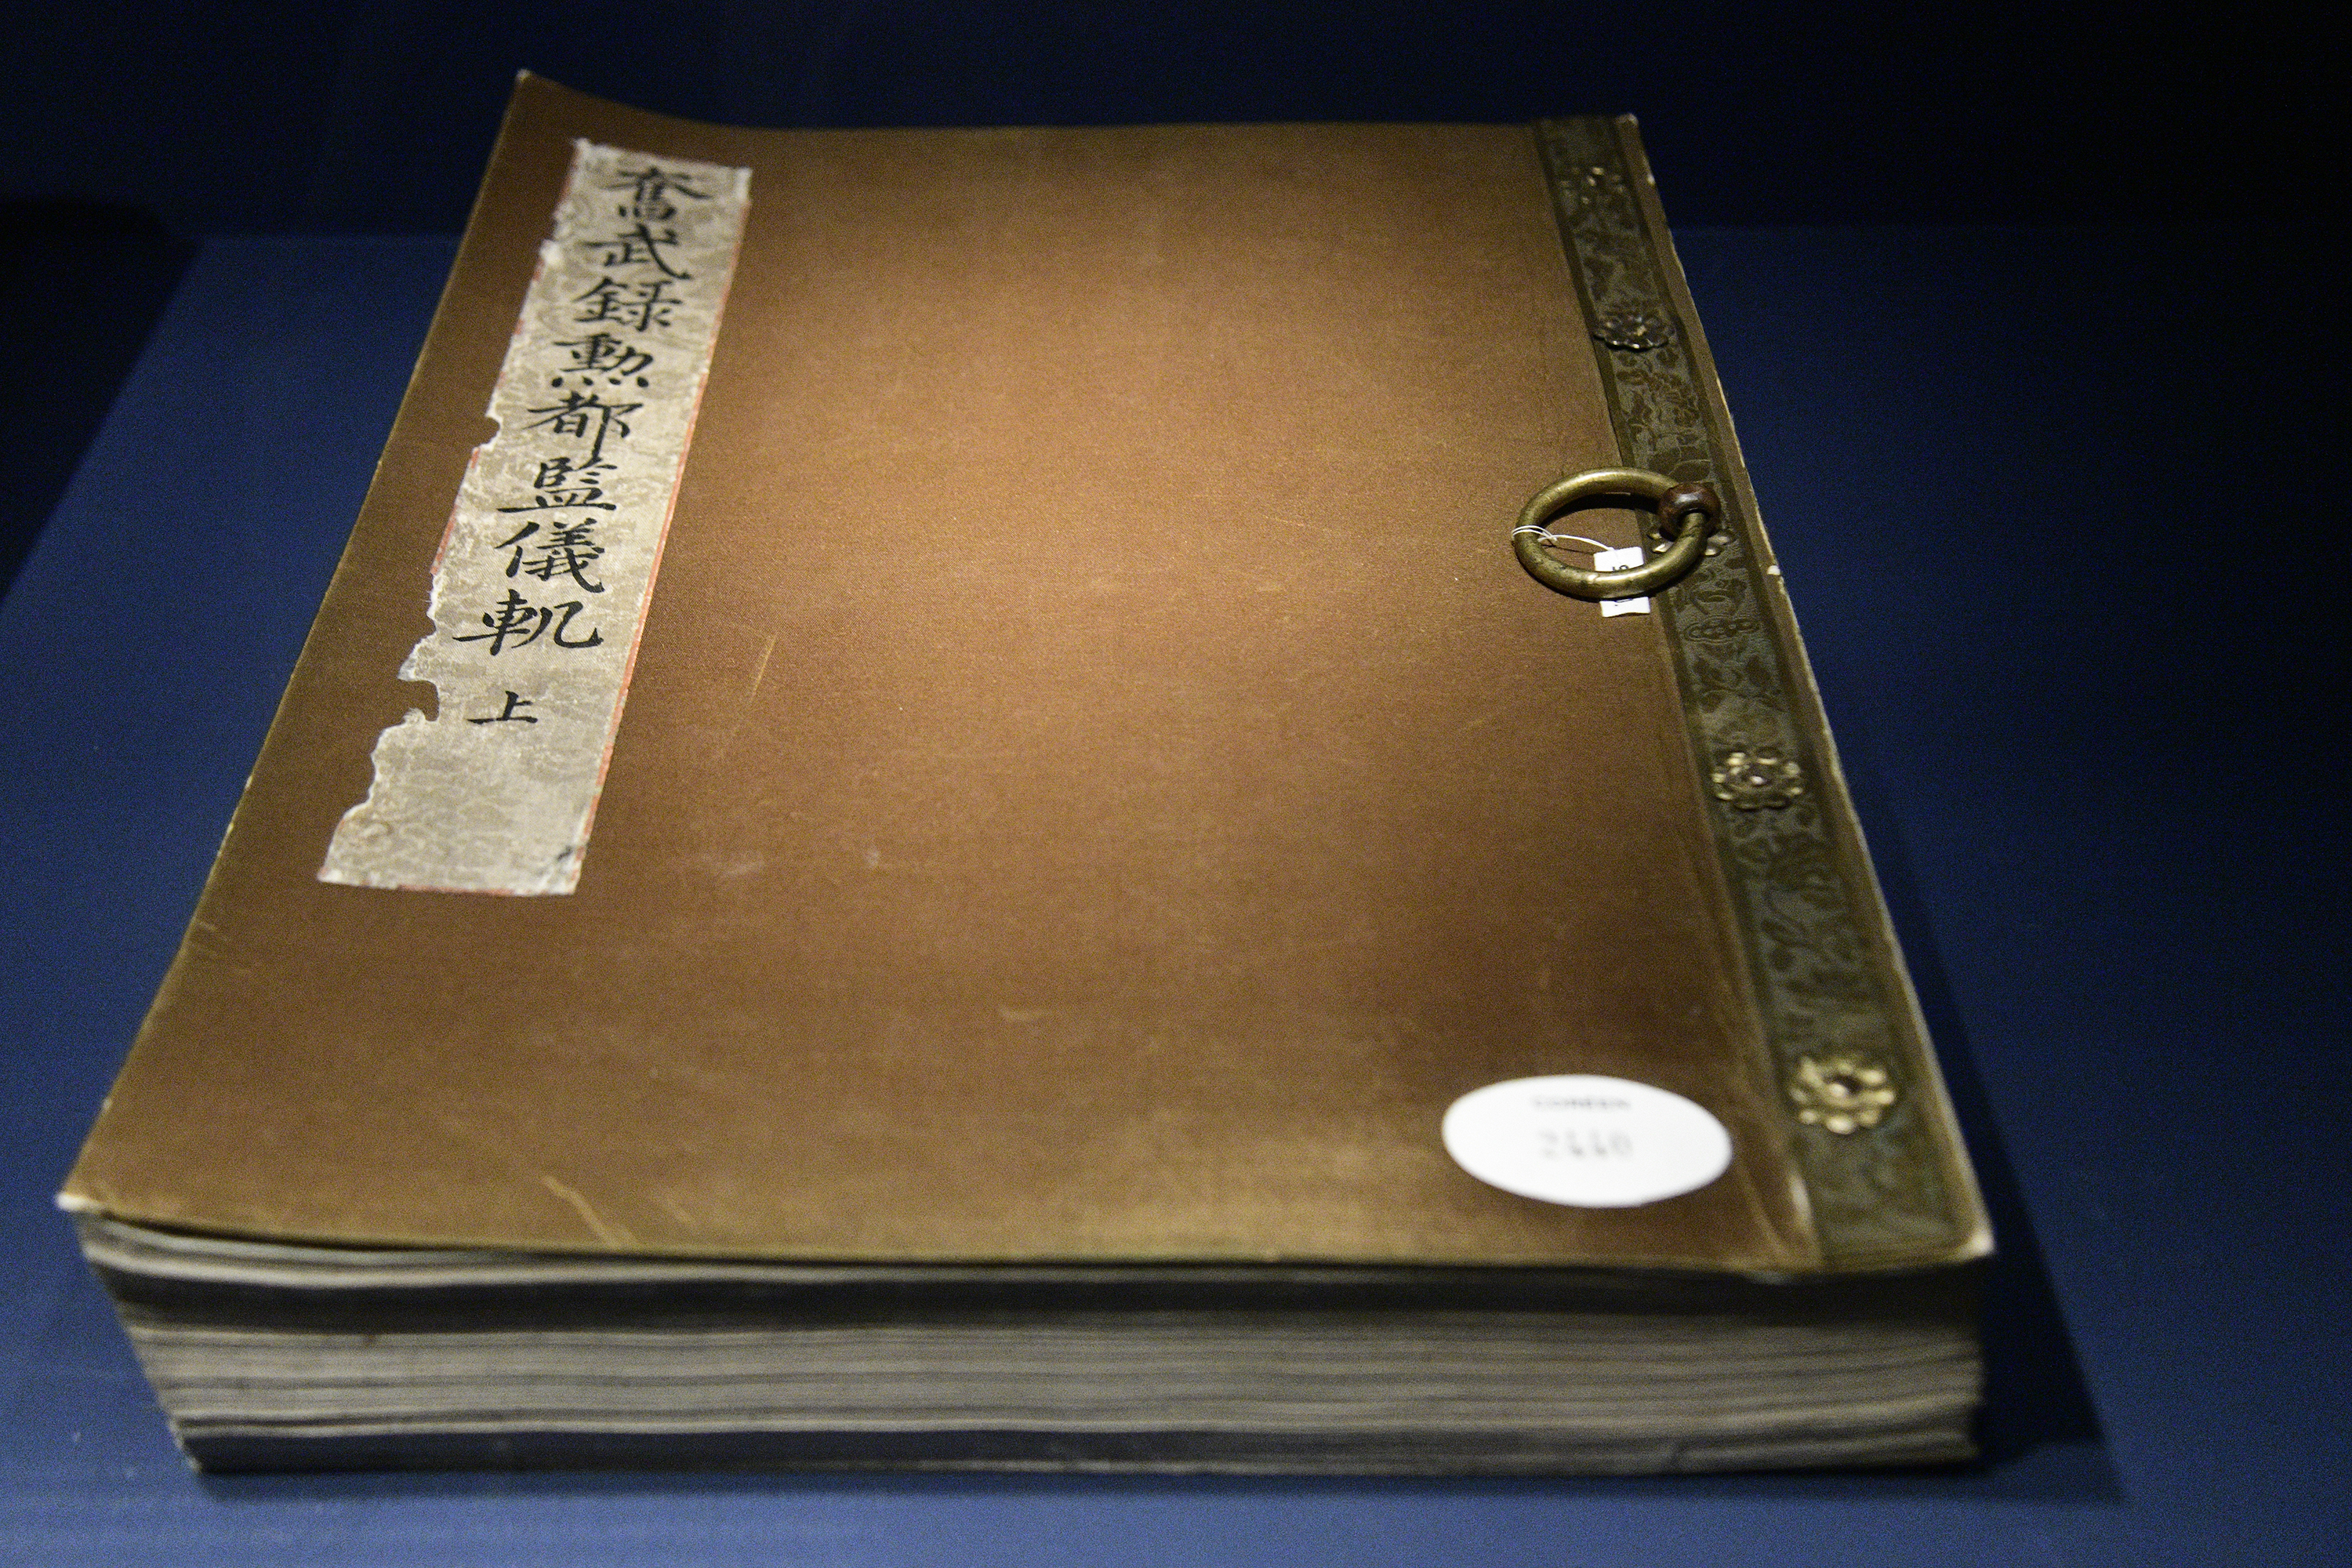 奮武録勳都監儀軌 上
COREEN
2440